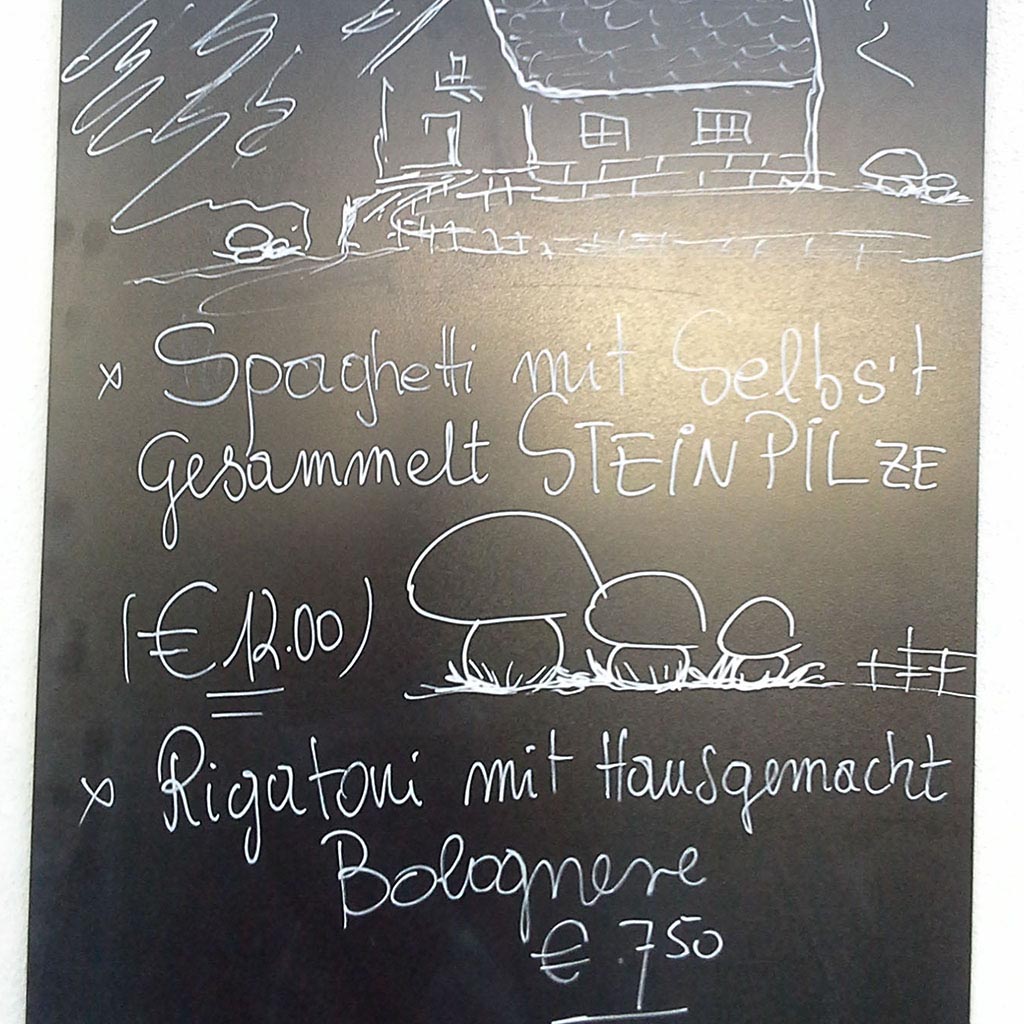 x Spaghetti mit Selbs't
Gesammelt STEINPILZE
(€ 12.00)
x Rigatoni mit Hausgemacht
Bolognese
€ .750